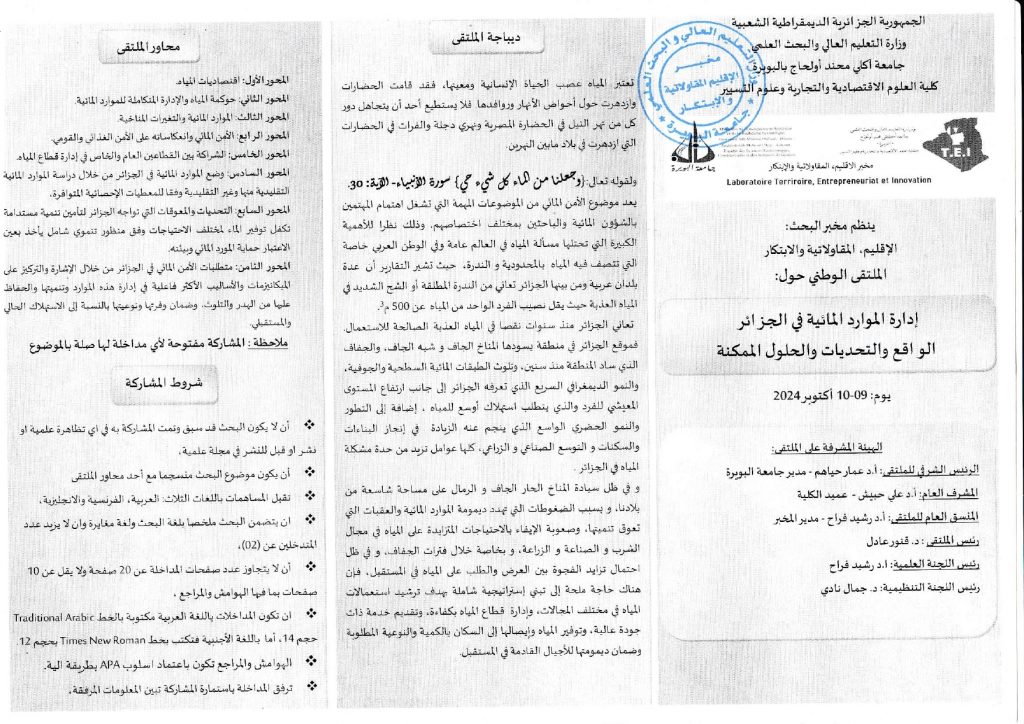 الجمهورية الجزائرية الديمقراطية الشعبية
وزارة التعليم العالي والبحث العلمي
جامعة أكلي محند أولحاج بالبويرة
كلية العلوم الاقتصادية والتجارية وعلوم التسيير
وزارة التعليم العالي و البحث العلمي
مخبر
الإقليم المقاولاتية
و الإبتكار
جامعة البويرة
جامعة البويرة
T.E.I
مخبر الاقليم، المقاولاتية والإبتكار
Laboratoire Terriroire, Entrepreneuriat et Innovation
ينظم مخبر البحث:
الإقليم، المقاولاتية والابتكار
الملتقى الوطني حول:
إدارة الموارد المائية في الجزائر
الواقع والتحديات والحلول الممكنة
يوم: 09-10 أكتوبر 2024
الهيئة المشرفة على الملتقى:
الرئيس الشرفي للملتقى: أ.د عمار حياهم - مدير جامعة البويرة
المشرف العام: أ.د علي حبيش - عميد الكلية
المنسق العام للملتقى: أ.د رشيد فراح - مدير المخبر
رئيس الملتقى : د. قنور عادل
رئيس اللجنة العلمية: أ.د رشيد فراح
رئيس اللجنة التنظيمية: د. جمال نادي
ديباجة الملتقى
تعتبر المياه عصب الحياة الإنسانية ومعينها، فقد قامت الحضارات
وازدهرت حول أحواض الأنهار وروافدها. فلا يستطيع أحد أن يتجاهل دور
كل من نهر النيل في الحضارة المصرية ونهري دجلة والفرات في الحضارات
التي ازدهرت في بلاد مابين النهرين.
ولقوله تعالى:{وجعلنا من الماء كل شيء حي} سورة الأنبياء- الآية: 30.
يعد موضوع الأمن المائي من الموضوعات المهمة التي تشغل اهتمام المهتمين
بالشؤون المائية والباحثين بمختلف اختصاصهم. وذلك نظرا للأهمية
الكبيرة التي تحتلها مسألة المياه في العالم عامة وفي الوطن العربي خاصة
التي تتصف فيه المياه بالمحدودية و الندرة، حيث تشير التقارير أن عدة
بلدان عربية ومن بينها الجزائر تعاني من الندرة المطلقة أو الشح الشديد في
المياه العذبة حيث يقل نصيب الفرد الواحد من المياه عن 500 م³.
تعاني الجزائر منذ سنوات نقصا في المياه العذبة الصالحة للاستعمال.
فموقع الجزائر في منطقة يسودها المناخ الجاف و شبه الجاف، والجفاف
الذي ساد المنطقة منذ سنين، وتلوث الطبقات المائية السطحية والجوفية،
والنمو الديمغرافي السريع الذي تعرفه الجزائر إلى جانب ارتفاع المستوى
المعيشي للفرد والذي يتطلب استهلاك أوسع للمياه ، إضافة إلى التطور
والنمو الحضري الواسع الذي ينجم عنه الزيادة في إنجاز البناءات
والسكنات و التوسع الصناعي و الزراعي، كلها عوامل تزيد من حدة مشكلة
المياه في الجزائر.
و في ظل سيادة المناخ الحار الجاف و الرمال على مساحة شاسعة من
بلادنا، و بسبب الضغوطات التي تهدد ديمومة الموارد المائية والعقبات التي
تعوق تنميتها، وصعوبة الإيفاء بالاحتياجات المتزايدة على المياه في مجال
الشرب و الصناعة و الزراعة، و بخاصة خلال فترات الجفاف، و في ظل
احتمال تزايد الفجوة بين العرض والطلب على المياه في المستقبل، فإن
هناك حاجة ملحة إلى تبني إستراتيجية شاملة بهدف ترشيد استعمالات
المياه في مختلف المجالات، وإدارة قطاع المياه بكفاءة، وتقديم خدمة ذات
جودة عالية، وتوفير المياه وإيصالها إلى السكان بالكمية والنوعية المطلوبة
وضمان ديمومتها للأجيال القادمة في المستقبل.
محاور الملتقى
المحور الأول: اقتصاديات المياه.
المحور الثاني: حوكمة المياه والإدارة المتكاملة للموارد المائية.
المحور الثالث: الموارد المائية والتغيرات المناخية.
المحور الرابع: الأمن المائي وانعكاساته على الأمن الغذائي والقومي.
المحور الخامس: الشراكة بين القطاعين العام والخاص في إدارة قطاع المياه.
المحور السادس: وضع الموارد المائية في الجزائر من خلال دراسة الموارد المائية
التقليدية منها وغير التقليدية وفقا للمعطيات الإحصائية المتوافرة.
المحور السابع: التحديات والمعوقات التي تواجه الجزائر لتأمين تنمية مستدامة
تكفل توفير الماء لمختلف الاحتياجات وفق منظور تنموي شامل يأخذ بعين
الاعتبار حماية المورد المائي وبيئته.
المحور الثامن: متطلبات الأمن المائي في الجزائر من خلال الإشارة والتركيز على
الميكانيزمات والأساليب الأكثر فاعلية في إدارة هذه الموارد وتنميتها والحفاظ
عليها من الهدر والتلوث. وضمان وفرتها ونوعيتها بالنسبة إلى الاستهلاك الحالي
والمستقبلي.
ملاحظة : المشاركة مفتوحة لأي مداخلة لها صلة بالموضوع
شروط المشاركة
❖ أن لا يكون البحث قد سبق وتمت المشاركة به في اي تظاهرة علمية او
نشر او قبل للنشر في مجلة علمية.
❖ أن يكون موضوع البحث منسجما مع أحد محاور الملتقى
❖ تقبل المساهمات باللغات الثلاث: العربية، الفرنسية والانجليزية.
❖ ان يتضمن البحث ملخصا بلغة البحث ولغة مغايرة وان لا يزيد عدد
المتدخلين عن (02).
❖ أن لا يتجاوز عدد صفحات المداخلة عن 20 صفحة ولا يقل عن 10
صفحات بما فيها الهوامش والمراجع .
❖ ان تكون المداخلات باللغة العربية مكتوبة بالخط Traditional Arabic
حجم 14، أما باللغة الأجنبية فتكتب بخط Times New Roman بحجم 12.
❖ الهوامش والمراجع تكون باعتماد اسلوب APA بطريقة الية.
❖ ترفق المداخلة باستمارة المشاركة تبين المعلومات المرفقة.